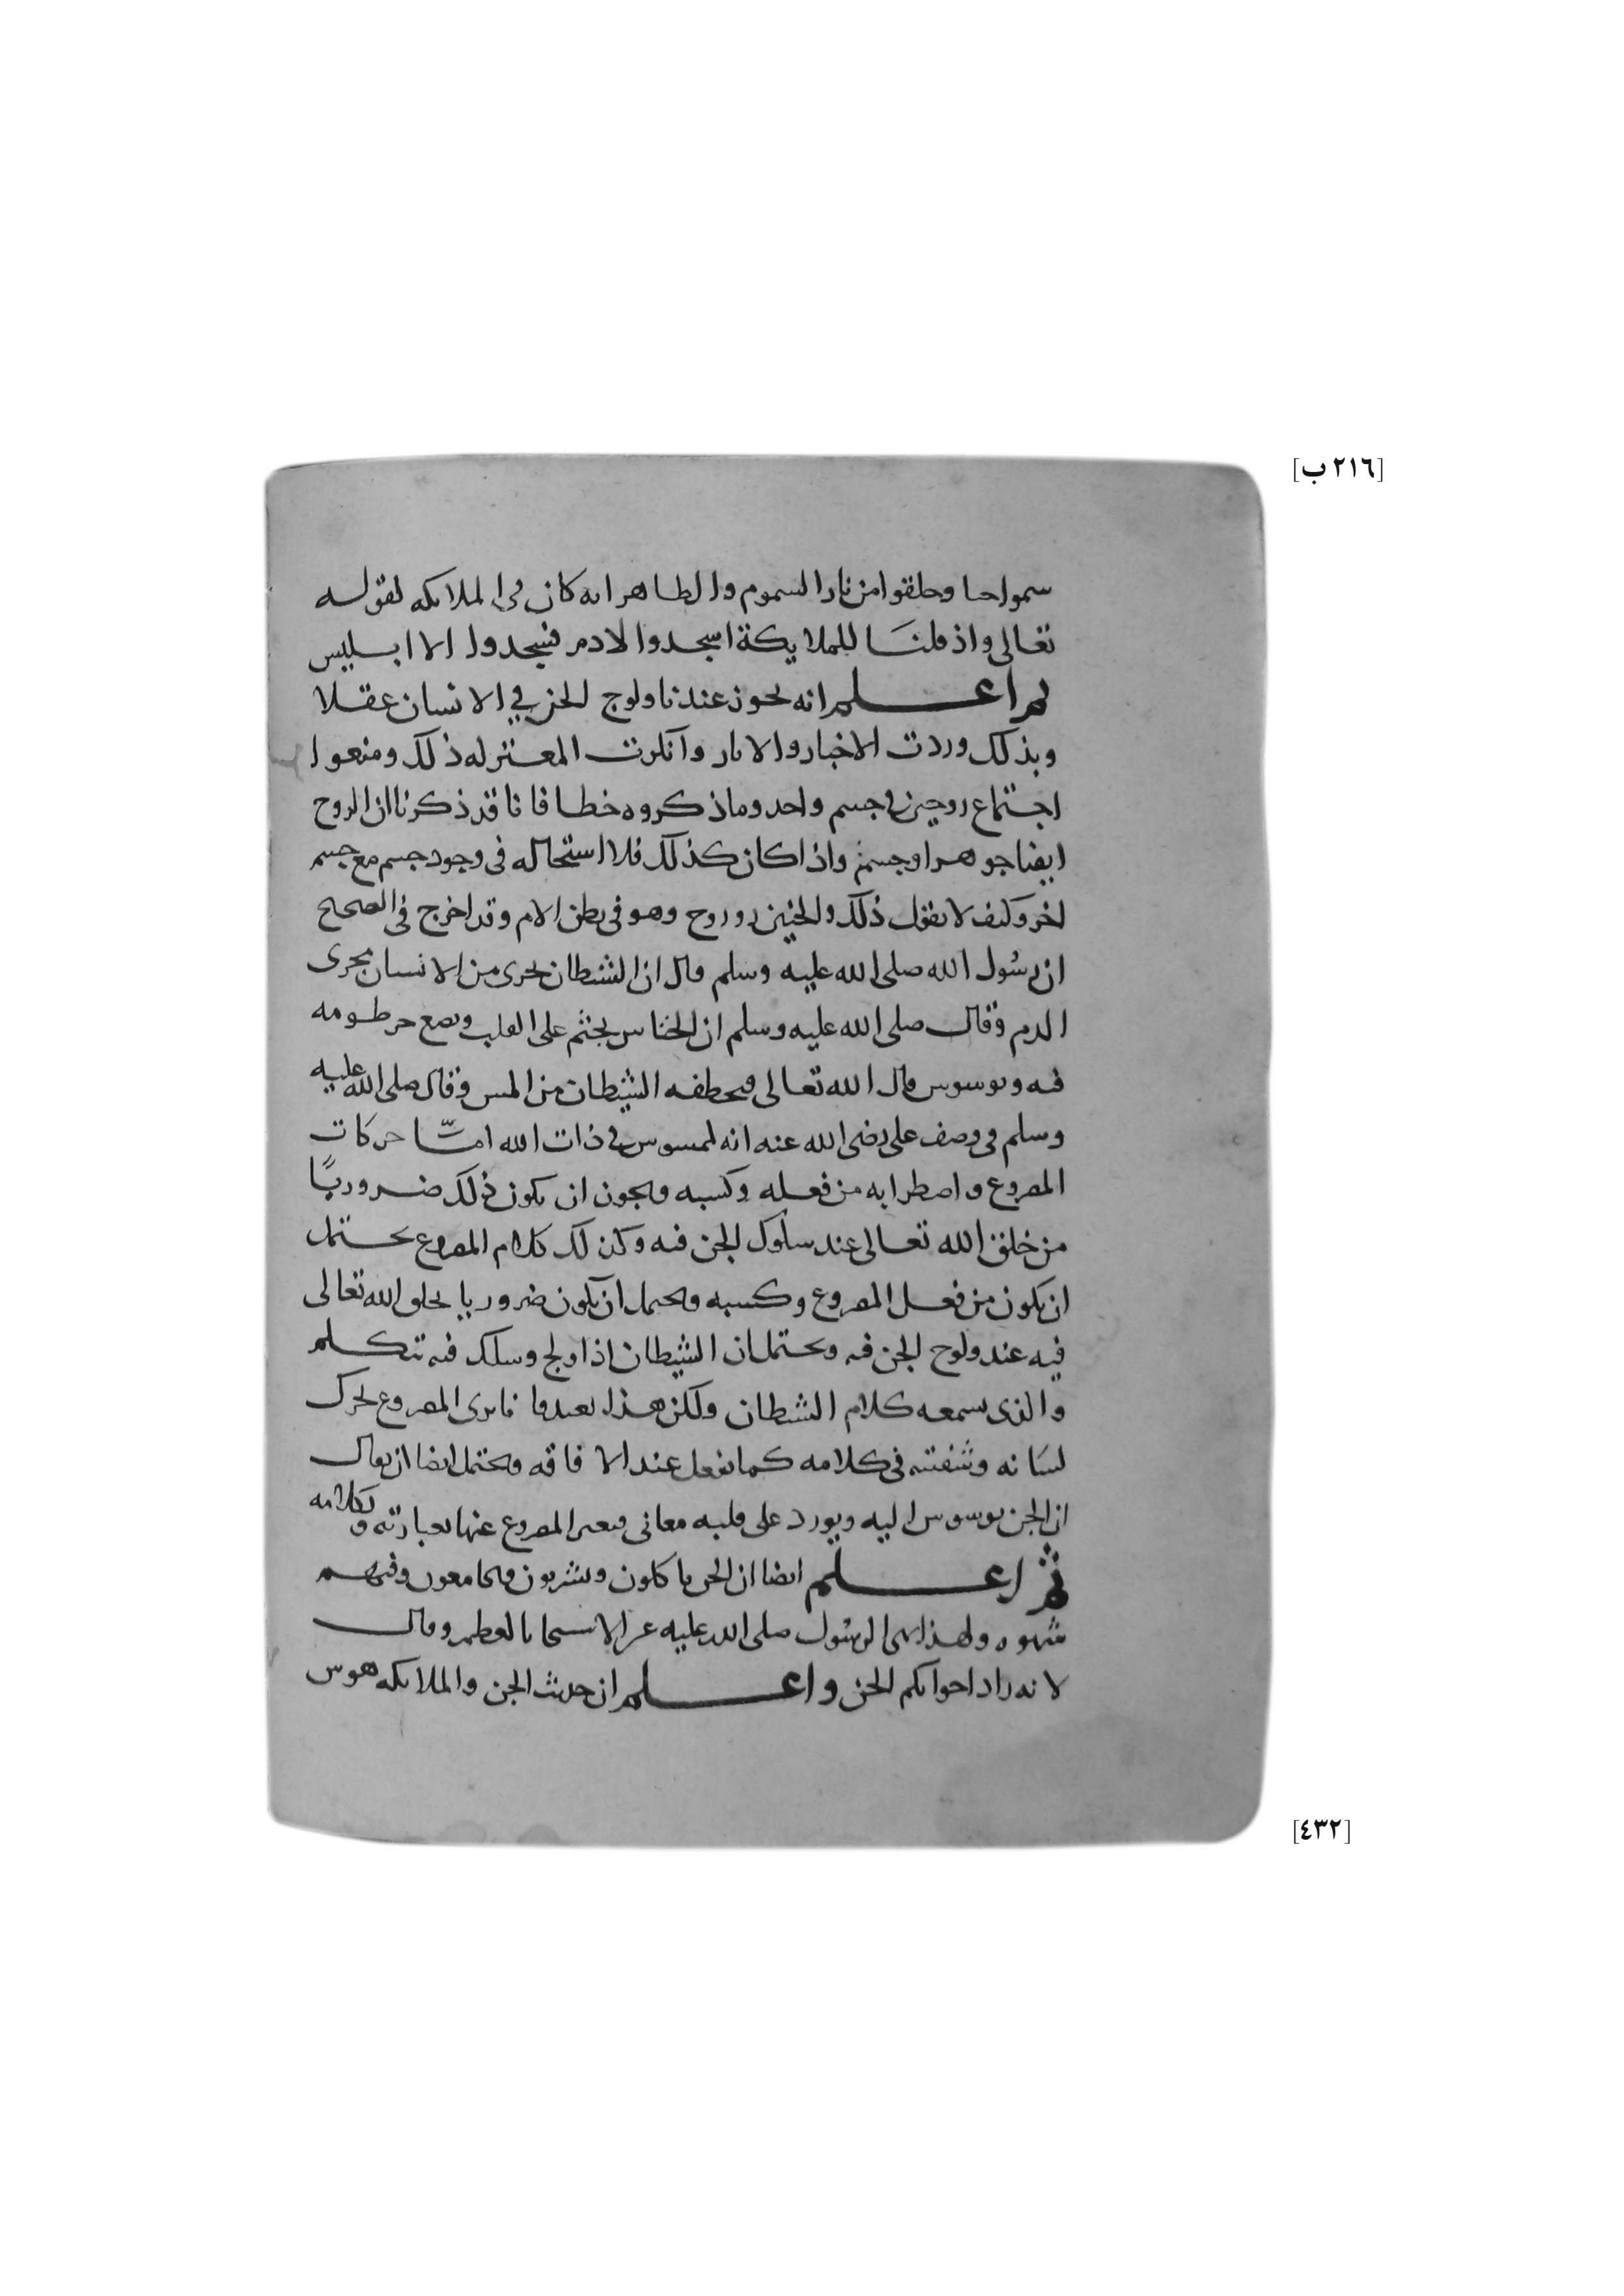 [٢١٦ ب]
سموا جنا وخلقوا من نار السموم والظاهر انه كان من الملائكه لقوله
تعالى واذ قلنا للملايكة اسجدوا لادم فسجدوا الا ابليس
ثم اعلم انه يجوز عندنا ولوج الجن في الانسان عقلا
وبذلك وردت الاخبار والاثار وانكرت المعتزله ذلك ومنعوا
اجتماع روحين في جسم واحد وما ذكروه خطا فانا قد ذكرنا ان الروح
ايضا جوهر او جسم واذا كان كذلك فلا استحاله في وجود جسم مع جسم
اخر وكيف لا نقول ذلك والجنين ذو روح وهو في بطن الام وقد اخرج في الصحيح
ان رسول الله صلى الله عليه وسلم قال ان الشيطان يجرى من الانسان مجرى
الدم وقال صلى الله عليه وسلم ان الخناس يجثم على القلب ويضع خرطومه
فيه ويوسوس قال الله تعالى يتخبطه الشيطان من المس وقال صلى الله عليه
وسلم في وصف على رضى الله عنه انه لممسوس في ذات الله امّا حركات
المصروع واضطرابه من فعله وكسبه ويجوز ان يكون ذلك ضروريًا
من خلق الله تعالى عند سلوك الجن فيه وكذلك كلام المصروع يحتمل
ان يكون من فعل المصروع وكسبه ويحتمل ان يكون ضروريا بخلق الله تعالى
فيه عند ولوج الجن فيه ويحتمل ان الشيطان اذا ولج وسلك فيه تتكلم
والذى نسمعه كلام الشيطان ولكن هذا بعيد فانا نرى المصروع يحرك
لسانه وشفتيه في كلامه كما يفعل عند الافاقه ويحتمل ايضا ان يقال
ان الجن يوسوس اليه ويورد على قلبه معانى فيعبر المصروع عنها بعبارته وكلامه
ثم اعلم ايضا ان الجن ياكلون ويشربون ويجامعون وفيهم
شهوه ولهذا نهى الرسول صلى الله عليه عن الاستنجا بالعظم وقال
لانه زاد اخوانكم الجن واعلم ان حديث الجن والملائكه هوس
[٤٣٢]